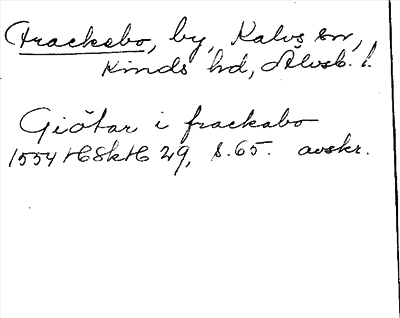 Frackabo, by, Kalvs sn,
Kinds hd, Älvsb. l.
Giötar i frackabo
1554 HSkH 29, s. 65. avskr.